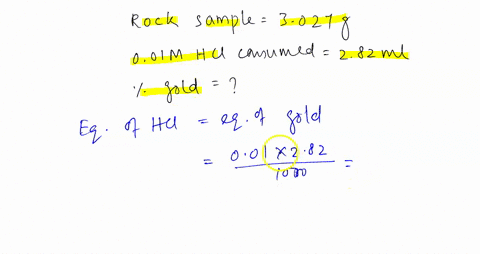 Rock sample = 3.027 g
0.01M HCl consumed = 2.82 ml
% gold = ?
Eq. of HCl = eq. of gold
= 0.01 × 2.82 =
1000